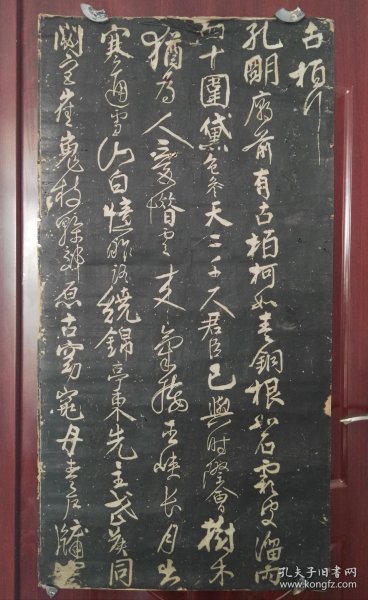 古柏行
孔明廟前有古柏柯如青銅根如石霜皮溜雨
四十圍黛色參天二千尺君臣已與時際會樹木
猶為人愛惜雲来氣接巫峽長月出
寒通雪山白憶昨路繞錦亭東先主武侯同
閟宮崔嵬枝幹郊原古窈窕丹青户牖空
孔夫子旧书网
www.kongfz.com